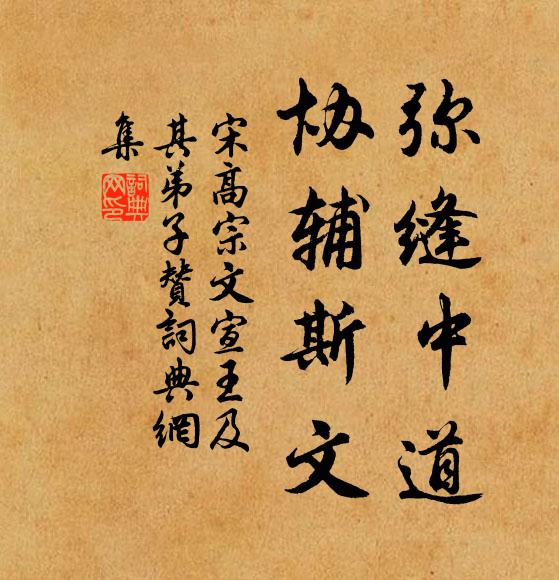 弥缝中道
协辅斯文
宋高宗文宣王及
其弟子赞詞典網
集
詞典网印